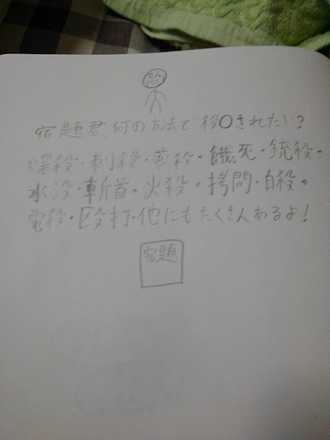 宿題君何の方法で殺〇されたい?
殺・刺殺・殺・餓死・銃殺・
水没・斬首・火殺・拷問・自殺・
電殺・殴打・他にもたくさんあるよ!
宿題